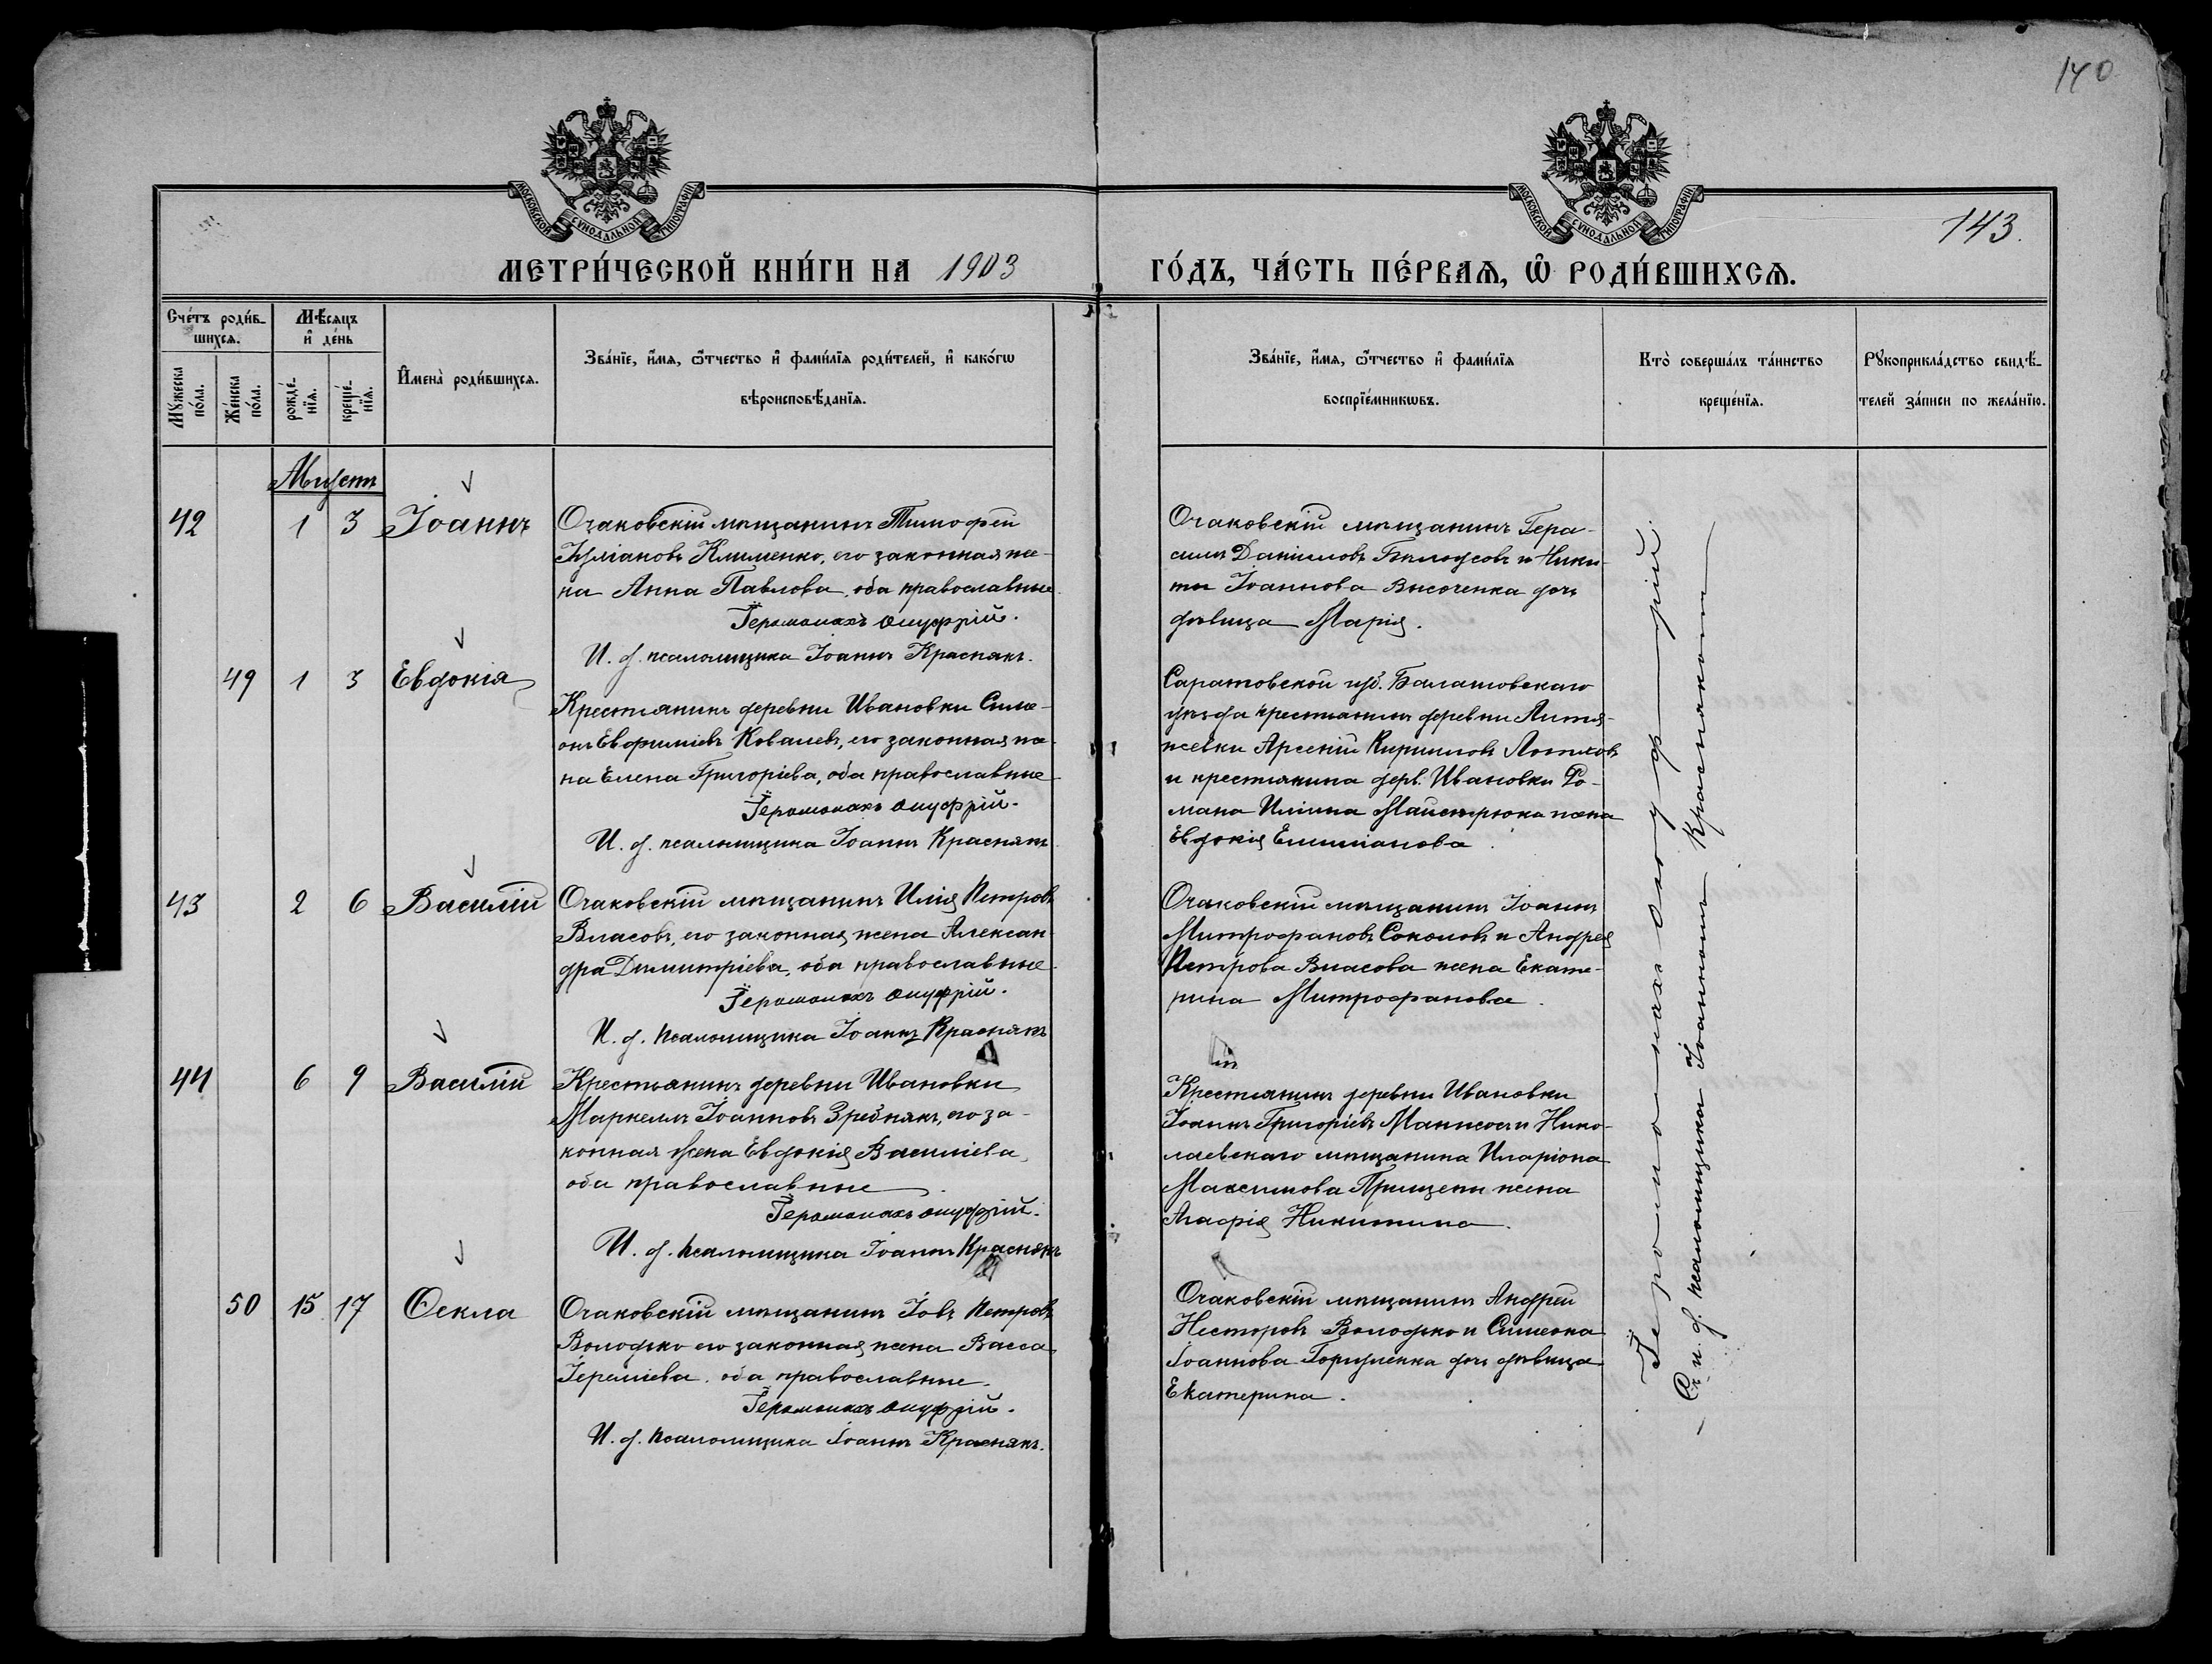 140
143.
МОСКОВСКОЙ СѴНОДАЛЬНОЙ ТИПОГРАФІИ
МОСКОВСКОЙ СѴНОДАЛЬНОЙ ТИПОГРАФІИ
МЕТРИ́ЧЕСКОЙ КНИ́ГИ НА 1903 ГО́ДЪ, ЧА́СТЬ ПЕ́РВАѦ, Ѡ РОДИ́ВШИХСѦ.
Сче́тъ роди́в-
шихсѧ.
Мѣ́сѧцъ
и҆ де́нь
Мꙋ́жеска по́ла.
Же́нска по́ла.
рожде́-
нїѧ.
креще́-
нїѧ.
И҆мена̀ роди́вшихсѧ.
Зва́нїе, и҆́мѧ, ѻ҆́тчество и҆ фами́лїѧ роди́телей, и҆ како́гѡ
вѣроисповѣ́данїѧ.
Зва́нїе, и҆́мѧ, ѻ҆́тчество и҆ фами́лїѧ
воспрїе́мникѡвъ.
Кто̀ соверша́лъ та́инство
креще́нїѧ.
Рꙋкоприкла́дство свидѣ́-
телей за́писи по жела́нїю.
Августъ
42 1 3 Іоаннъ
Очаковскій мѣщанинъ Тимофей
Іуліановъ Клименко, его законная же-
на Анна Павлова, оба православные
Іеромонахъ Онуфрій.
И. д. псаломщика Іоаннъ Краснякъ.
Очаковскій мѣщанинъ Гера-
симъ Даніиловъ Бѣлоусовъ и Ники-
ты Іоаннова Височенка дочь
дѣвица Марія.
49 1 3 Евдокія
Крестьянинъ деревни Ивановки Симе-
онъ Евфиміевъ Ковалевъ, его законная же-
на Елена Григоріева, оба православные
Іеромонахъ Онуфрій.
И. д. псаломщика Іоаннъ Краснякъ
Саратовской губ. Балашовскаго
уѣзда крестьянинъ деревни
Арсеній Кирилловъ
и крестьянина дерв. Ивановки Ро-
мана Иліина Майстрюка жена
Евдокія Емиліанова
43 2 6 Василій
Очаковскій мѣщанинъ Илія Петровъ
Власовъ, его законная жена Алексан-
дра Димитріева, оба православные
Іеромонахъ Онуфрій.
И. д. псаломщика Іоаннъ Краснякъ
Очаковскій мѣщанинъ Іоаннъ
Митрофановъ Соколовъ и Андрея
Петрова Власова жена Екате-
рина Митрофанова.
44 6 9 Василій
Крестьянинъ деревни Ивановки
Маркеллъ Іоанновъ Зребнякъ, его за-
конная жена Евдокія Василіева,
оба православные
Іеромонахъ Онуфрій.
И. д. псаломщика Іоаннъ Краснякъ
Крестьянинъ деревни Ивановки
Іоаннъ Григоріевъ и Нико-
лаевскаго мѣщанина Иларіона
Максимова Прищепы жена
Агафія Никитина.
50 15 17 Ѳекла
Очаковскій мѣщанинъ Іовъ Петровъ
Володько его законная жена Васса
Іереміева, оба православные.
Іеромонахъ Онуфрій.
И. д. псаломщика Іоаннъ Краснякъ.
Очаковскій мѣщанинъ Андрей
Несторовъ Володько и Симеона
Іоаннова Горуленка дочь дѣвица
Екатерина.
Іеромонахъ Онуфрій
Съ и. д. псаломщика Іоанномъ Краснякомъ